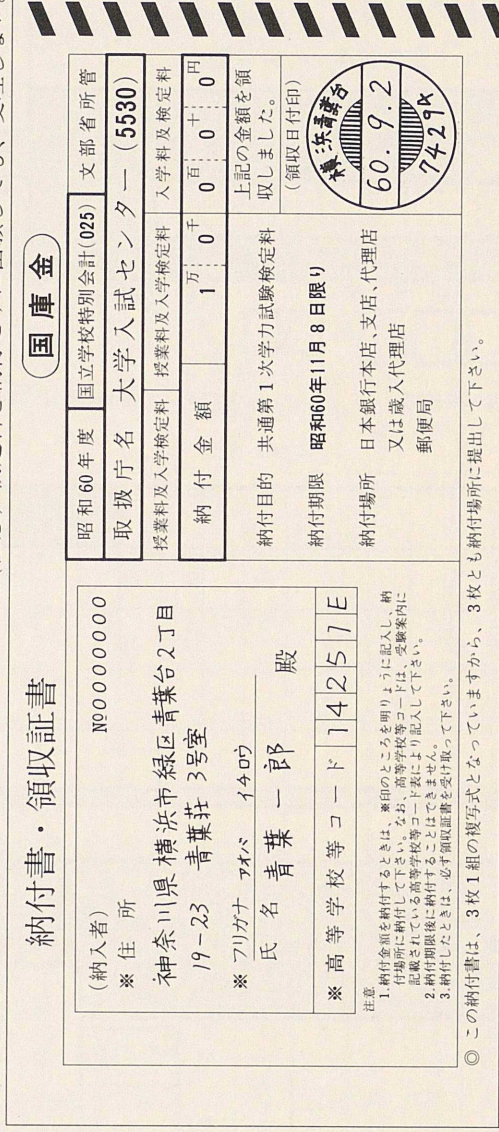 国庫金
納付書・領収証書
(納入者) №00000000
※ 住 所
神奈川県横浜市緑区青葉台2丁目
19-23 青葉荘 3号室
※ フリガナ アオバ イチロウ
氏 名 青葉一郎 殿
※ 高等学校等コード 14251E
注意
1.納付金額を納付するときは、※印のところを明りょうに記入し、納
付場所に納付して下さい。なお、高等学校等コードは、受験案内に
記載されている高等学校等コード表により記入して下さい。
2.納付期限後に納付することはできません。
3.納付したときは、必ず領収証書を受け取って下さい。
昭和60年度 国立学校特別会計(025) 文部省所管
取扱庁名 大学入試センター (5530)
授業料及入学検定料 授業料及入学検定料 入学料及検定料
納付金額 1万 0千 0百 0十 0円
納付目的 共通第1次学力試験検定料
納付期限 昭和60年11月8日限り
納付場所 日本銀行本店、支店、代理店
又は歳入代理店
郵便局
上記の金額を領
収しました。
(領収日付印)
横浜青葉台
60.9.2
7429
◎ この納付書は、3枚1組の複写式となっていますから、3枚とも納付場所に提出して下さい。